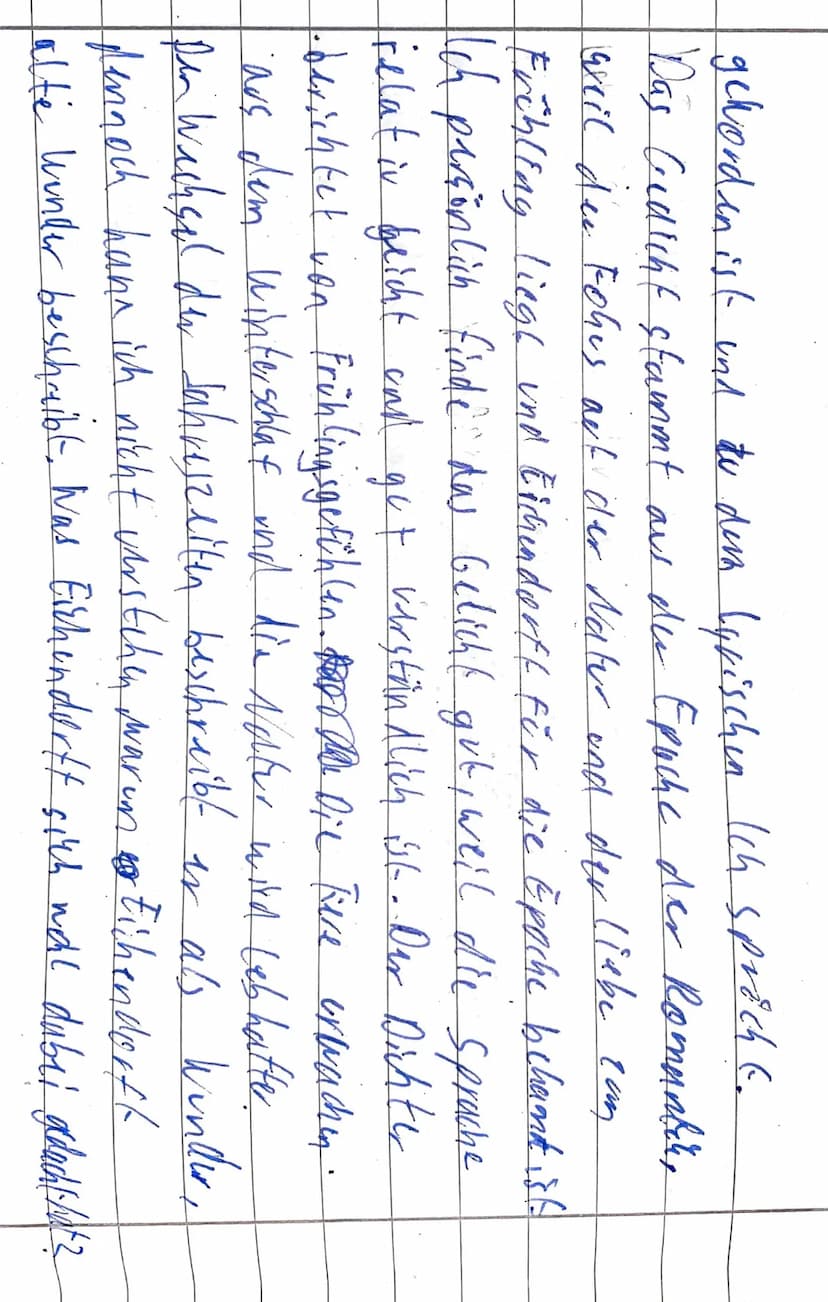 geworden ist und zu dem lyrischen Ich spricht.
Das Gedicht stammt aus der Epoche der Romantik,
weil der Fokus auf der Natur und der Liebe zum
Frühling liegt und Eichendorff für die Epoche bekannt ist.
Ich persönlich finde das Gedicht gut, weil die Sprache
relativ leicht und gut verständlich ist. Der Dichter
berichtet von Frühlingsgefühlen. Die Tiere erwachen
aus dem Winterschlaf und die Natur wird lebhafter.
Den Wechsel der Jahreszeiten beschreibt er als Wunder,
dennoch kann ich nicht verstehen, warum Eichendorff
alte Wunder beschreibt. Was Eichendorff sich wohl dabei gedacht hat?